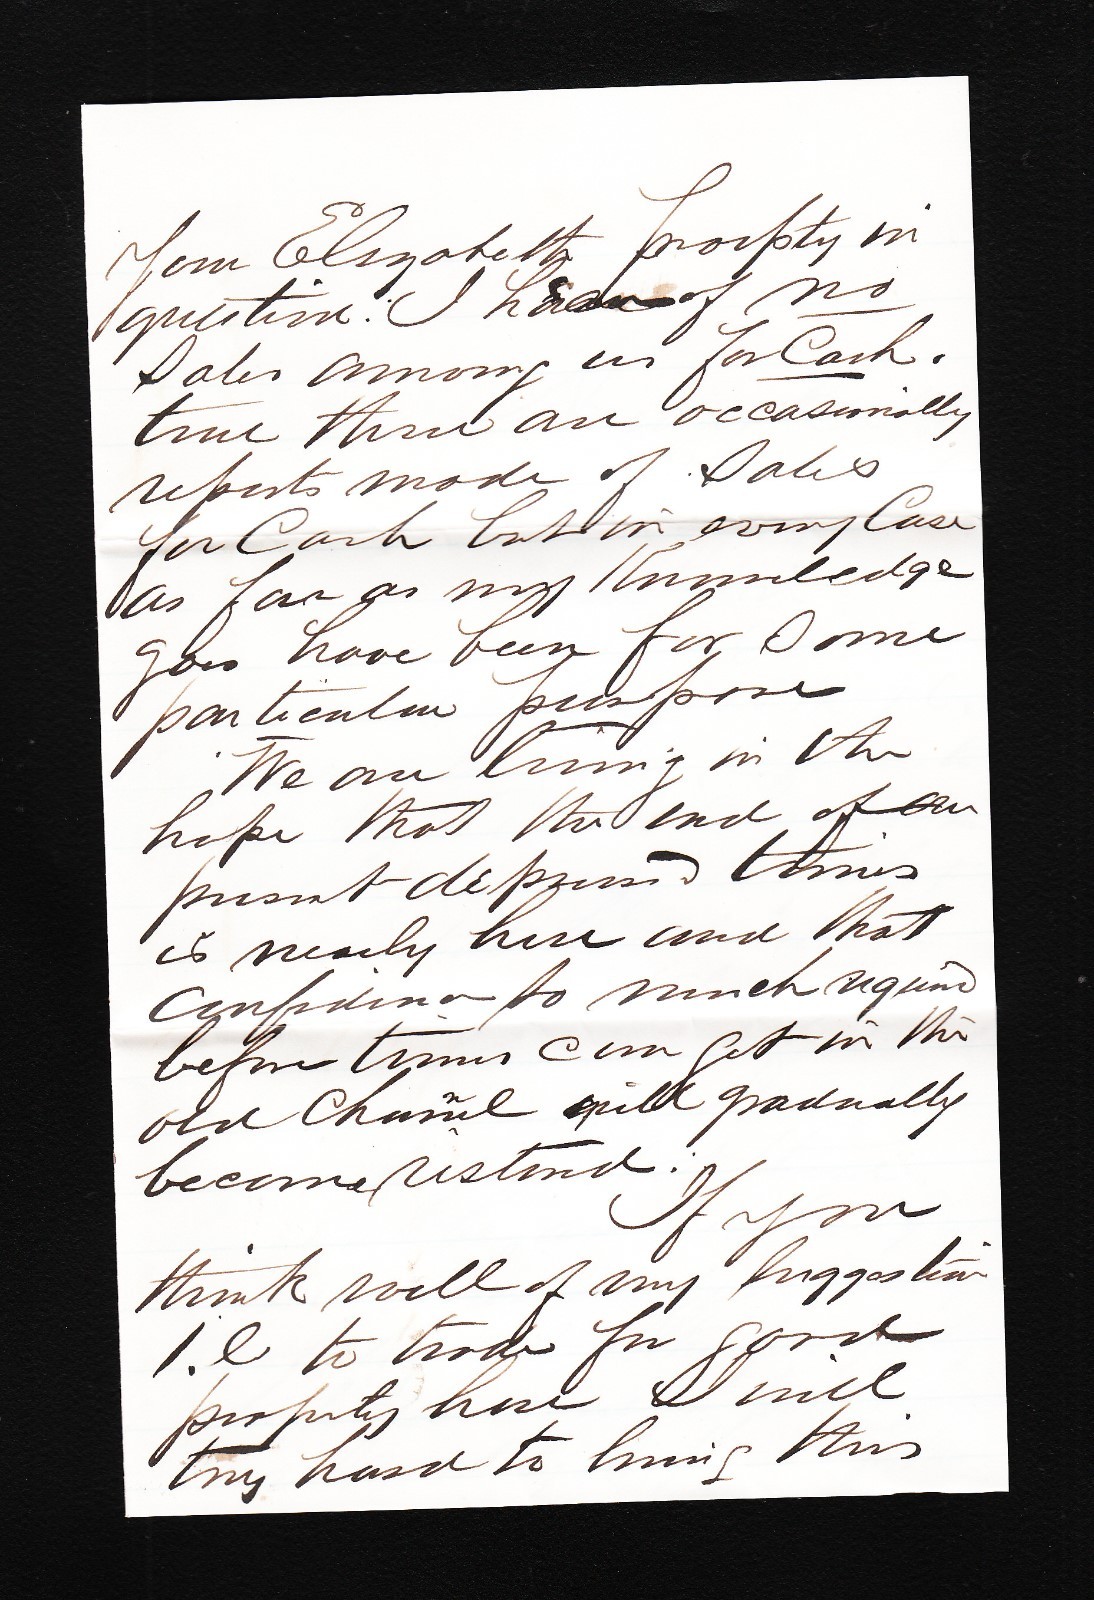 Your Elizabeth property in
question. I hear of no
Sales among us for Cash.
true there are occasionally
reports made of Sales
for Cash but in every Case
as far as my Knowledge
goes have been for Some
particular purpose
We are living in the
hope that the end of our
present depressed times
is nearly here and that
confidence so much required
before times can get in the
old Channel will gradually
become restored.
If you
think well of my Suggestion
I.E to trade for good
property here I will
try hard to bring this